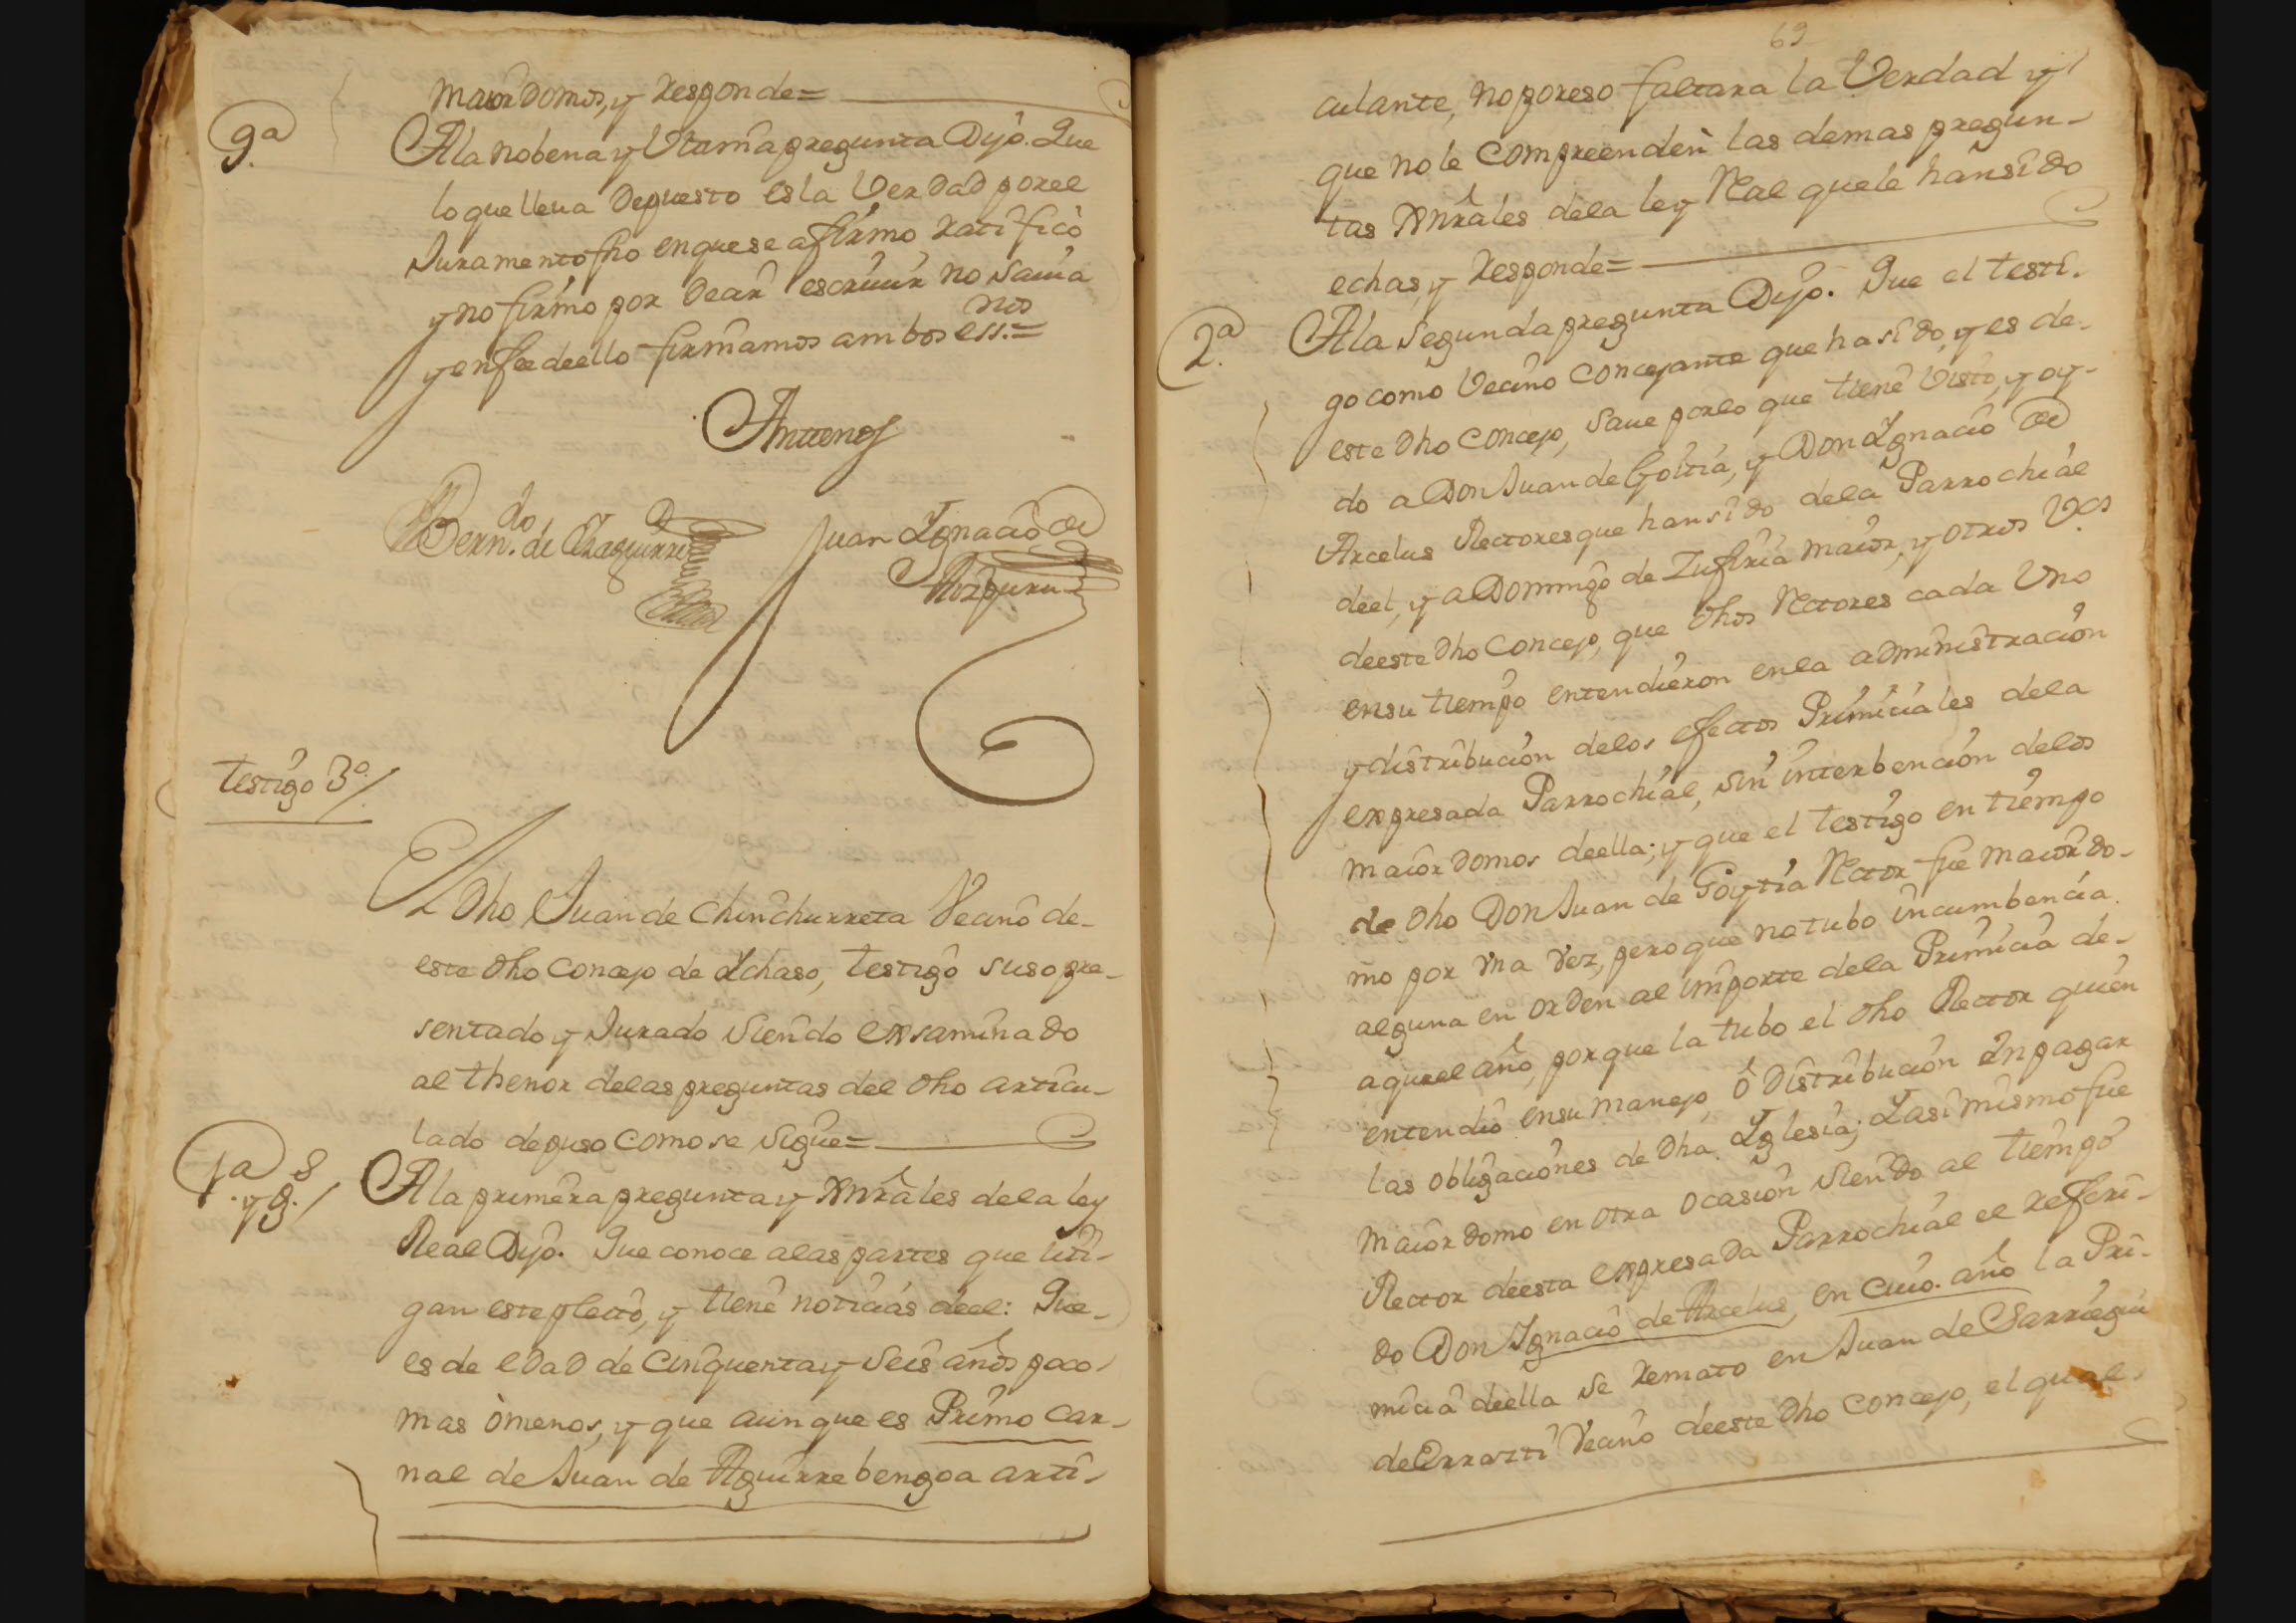 maiordomos, y responde=
9.ª
A la nobena y Vtama pregunta Dijo. Que
lo que lleua depuesto es la Verdad por el
Juramento fho en que se afirmo ratifico
y no firmo por decir escriuir no sauia
y en fee de ello firmamos ambos ess.nos=
Antenos
Bern.do de Yraguirre
Juan Ygnacio de
testigo 3º/
El dho Juan de Chinchurreta Vecino de-
este dho Concejo de Ychaso, testigo suso pre-
sentado y Jurado siendo exsaminado
al thenor de las preguntas del dho articu-
lado depuso como se sigue=
1ª 8
y 9./
A la primera pregunta y Xnrales de la ley
Real Dijo. Que conoce a las partes que liti-
gan este pleito, y tiene noticias de el: Que-
es de edad de Cinquenta y seis años poco
mas ò menos, y que aunque es Primo car-
nal de Juan de Aguirrebengoa arti-
69
culante, no por eso faltara la Verdad y
que no le Compreenden las demas pregun-
tas Xnrales de la ley Real que le han sido
echas, y responde=
2.ª
A la segunda pregunta Dijo. Que el testi-
go como Vecino Concejante que ha sido, y es de-
este dho Concejo, saue por lo que tiene Visto, y oy-
do a Don Juan de Goitia, y Don Ygnacio de
Arcelus Rectores que han sido de la Parrochial
de el, y a Domingo de Zufiria maior, y otros V.os
de este dho Concejo, que dhos Rectores cada Vno
en su tiempo entendieron en la administracion
y distribucion de los efectos Primiciales de la
expresada Parrochial, sin interbencion de los
maiordomos de ella; y que el testigo en tiempo
de dho Don Juan de Goytia Rector fue maiordo-
mo por vna vez, pero que no tubo incumbencia
alguna en orden al importe de la Primicia de-
aquel año, porque la tubo el dho Rector quien
entendio en su manejo, ô distribucion en pagar
las obligaciones de dha Yglesia; Y asi mismo fue
maiordomo en otra ocasion siendo al tiempo
Rector de esta expresada Parrochial el referi-
do Don Ygnacio de Arcelus, en cuio año la Pri-
micia de ella se remato en Juan de Sarriegui
de Errazti Vecino de este dho Concejo, el qual